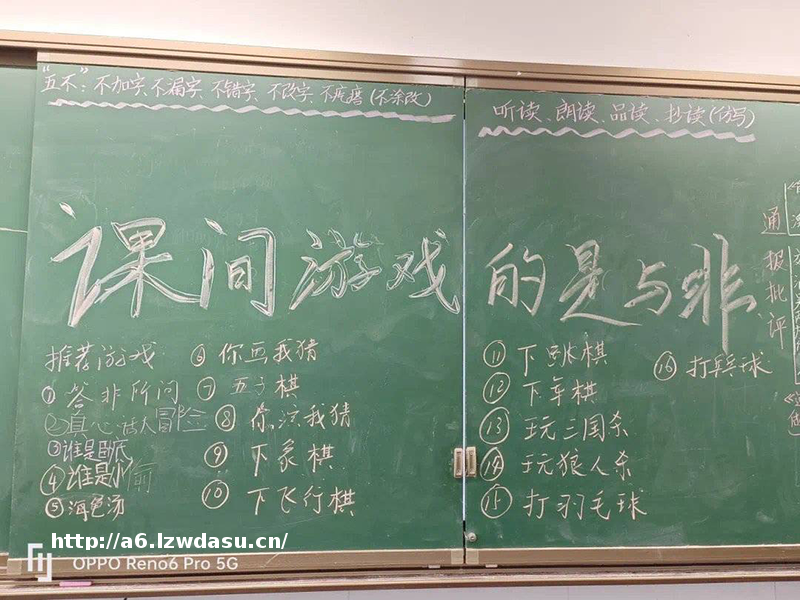 “五不”：不加字、不漏字、不错字、不改字、不疙瘩(不涂改)
听读、朗读、品读、抄读(仿写)
课间游戏的是与非
通报批评
推荐游戏
①答非所问
②真心话大冒险
③谁是卧底
④谁是小偷
⑤海龟汤
⑥你画我猜
⑦五子棋
⑧你演我猜
⑨下象棋
⑩下飞行棋
⑪下跳棋
⑫下军棋
⑬玩三国杀
⑭玩狼人杀
⑮打羽毛球
⑯打乒乓球
http://a6.lzwdasu.cn/
OPPO Reno6 Pro 5G